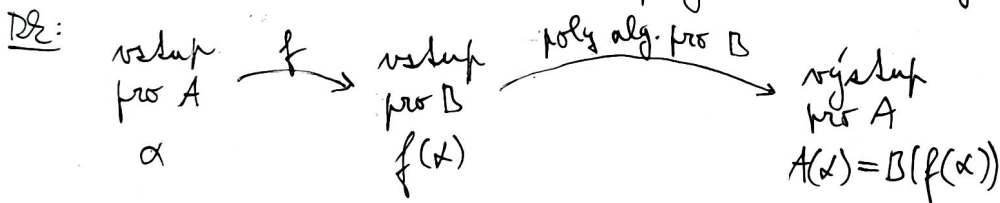 Dk:
vstup pro A
α
f
vstup pro B
f(α)
poly alg. pro B
výstup pro A
A(α) = B(f(α))